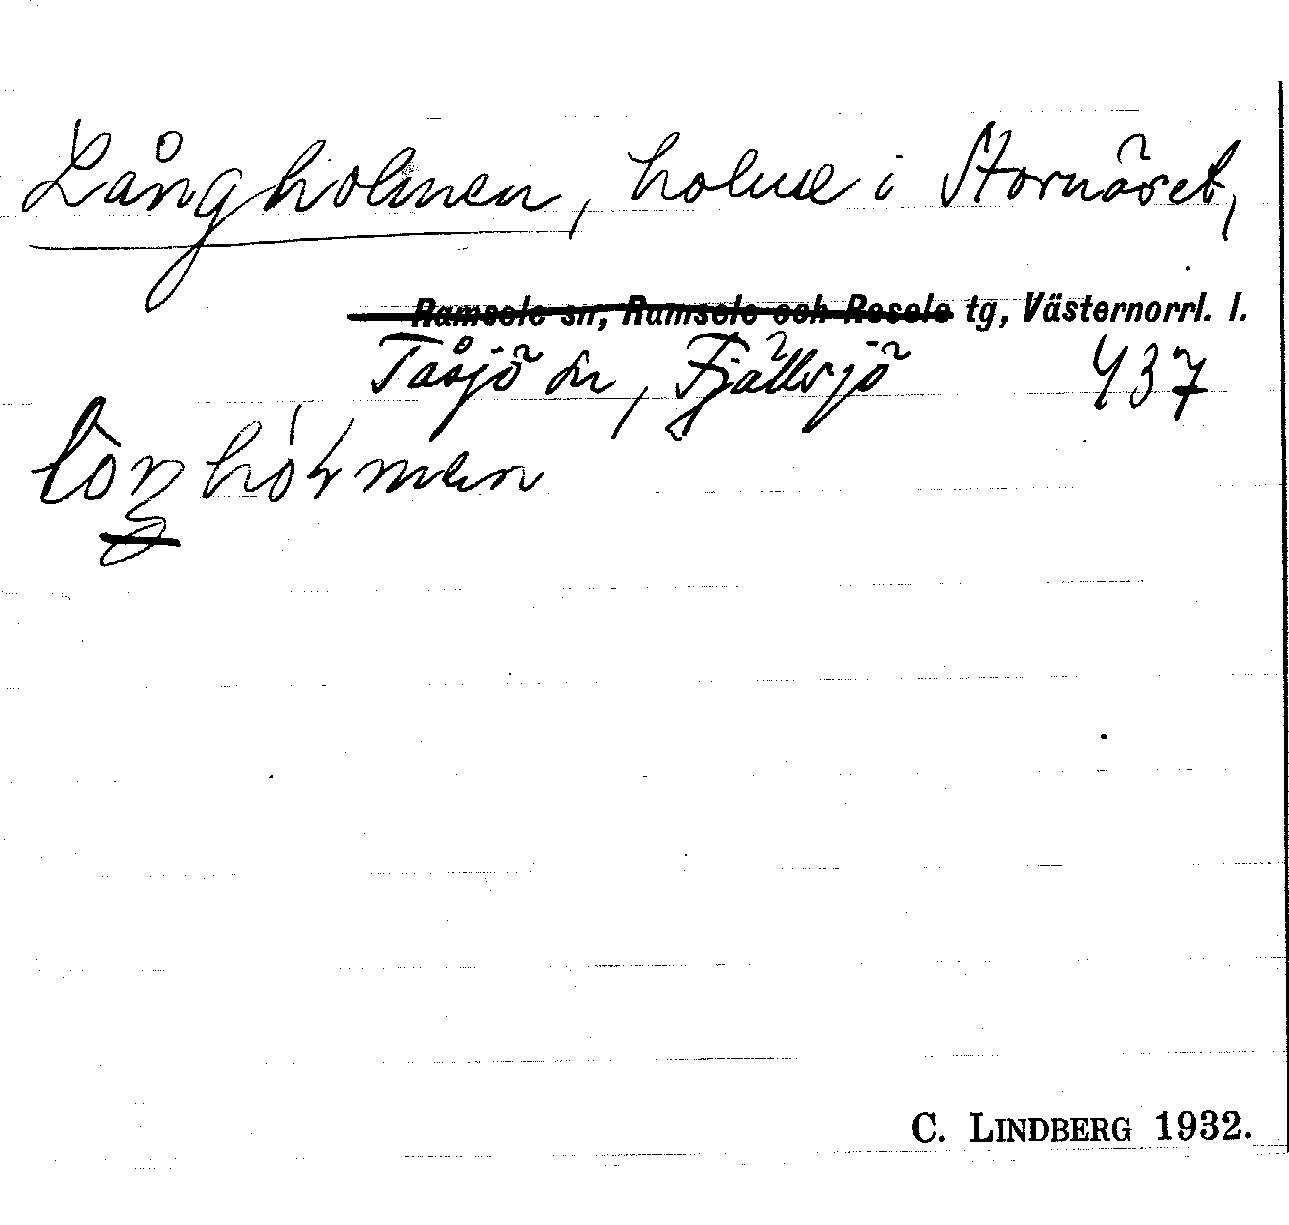 Långholmen, holme i Stornäset,
Ramsele sn, Ramsele och Resele tg, Västernorrl. l.
Tåsjö sn, Fjällsjö 437
C. LINDBERG 1932.